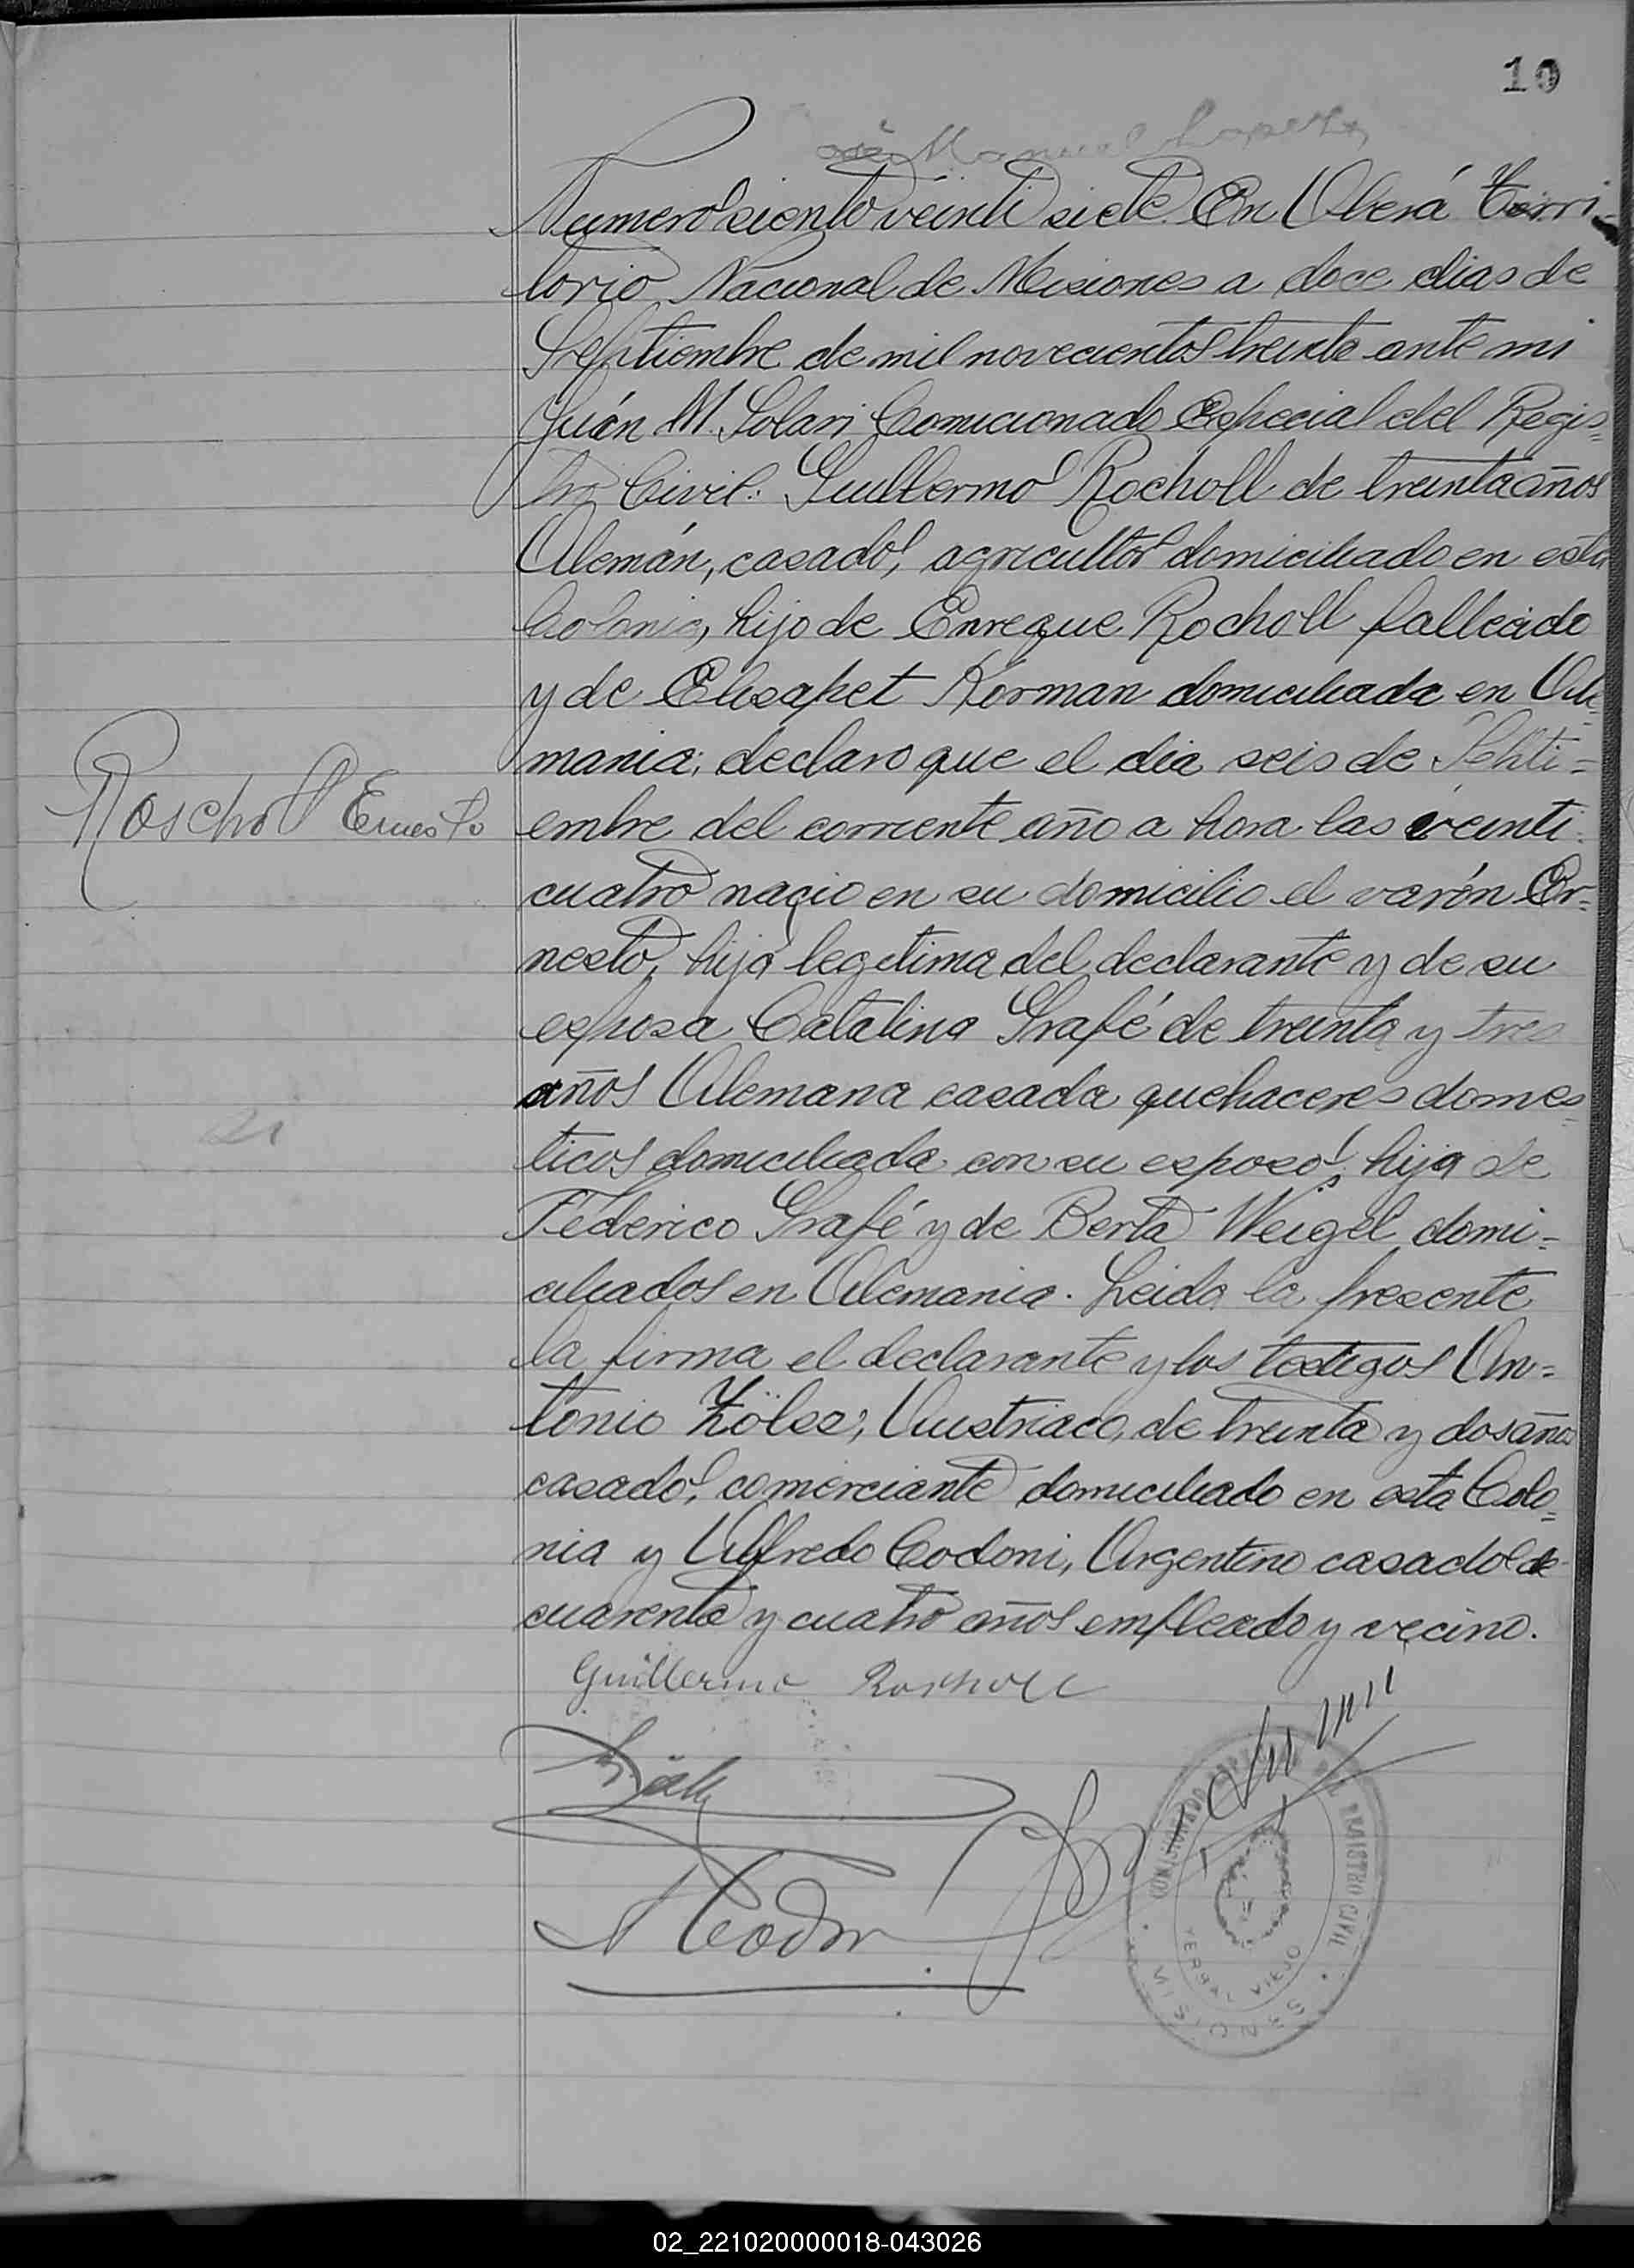 10
Manuel
Numero siento veinti siete. En Oberá Terri-
torio Nacional de Misiones a doce dias de
Septiembre de mil novecientos treinta ante mi
Juán M. Solari Comicionado Especial del Regis=
tro Civil: Guillermo Rocholl de treinta años
Alemán, casado, agricultor domiciliado en esta
Colonia, hijo de Enreque Rocholl fallecido
y de Elisapet Korman domiciliada en Ale=
mania; declaro que el dia seis de Sehti=
embre del corriente año a hora las veinti
cuatro nacio en su domicilio el varón Er=
nesto, hijo legitima del declarante y de su
esposa Catalina Grafé de treinta y tres
años Alemana casada quehaceres domes=
ticos domiciliada con su esposo, hija de
Federico Grafé y de Berta Weigel domi=
ciliados en Alemania. Leida la presente
la firma el declarante y los testigos An=
tonio Zölss; Austriaco, de treinta y dos años
casado, comerciante domiciliado en esta Colo=
nia y Alfredo Codoni, Argentino casado de
cuarenta y cuatro años empleado y vecino.
Roscholl Ernesto
Guillermo Rocholl
A Codoni
COMISIONADO ESPECIAL DEL REGISTRO CIVIL
YERBAL VIEJO
MISIONES
02_221020000018-043026